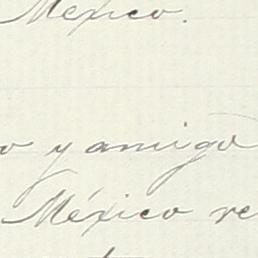 Mexico.
o y amigo
México re